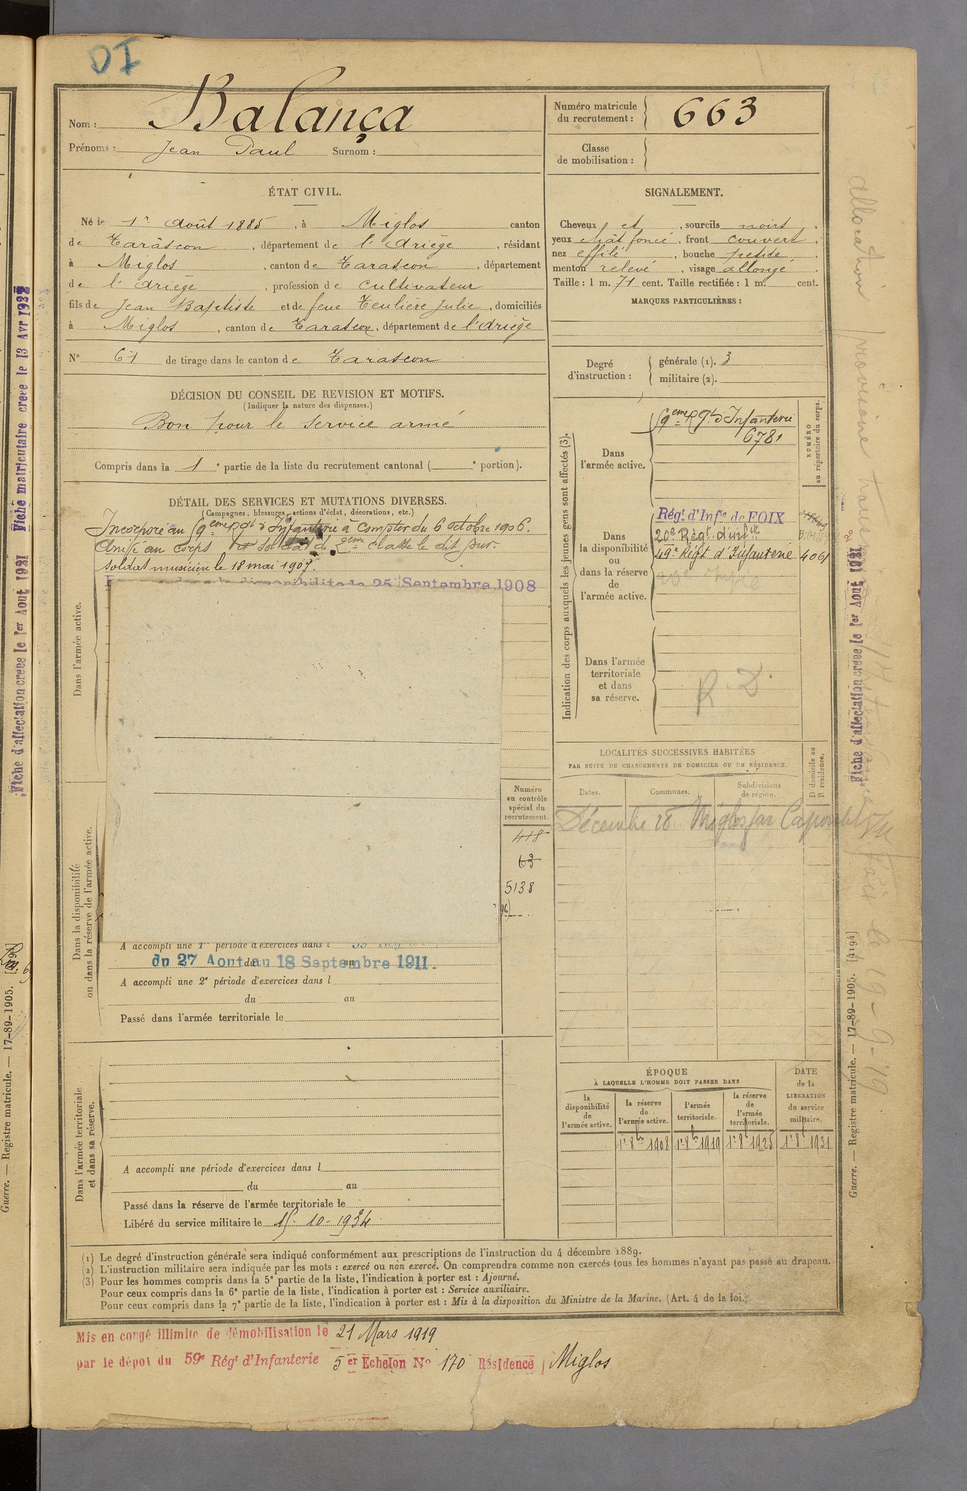 DI
Nom : Balança
Prénoms : Jean Paul Surnom :
Numéro matricule du recrutement : 663
Classe de mobilisation :
ÉTAT CIVIL.
Né le 1er Août 1885, à Miglos canton
de Tarascon, département de l'Ariège, résidant
à Miglos, canton de Tarascon, département
de l'Ariège, profession de cultivateur
fils de Jean Baptiste et de feue Teulière Julie, domiciliés
à Miglos, canton de Tarascon, département de l'Ariège
N° 61 de tirage dans le canton de Tarascon
SIGNALEMENT.
Cheveux et, sourcils noirs,
yeux chât foncé, front couvert,
nez effilé, bouche petite,
menton relevé, visage allongé,
Taille : 1 m. 71 cent. Taille rectifiée : 1 m. cent.
MARQUES PARTICULIÈRES :
Degré d'instruction : générale (1). 3
militaire (2).
DÉCISION DU CONSEIL DE REVISION ET MOTIFS.
(Indiquer la nature des dispenses.)
Bon pour le service armé
Compris dans la 1e partie de la liste du recrutement cantonal ( e portion).
DÉTAIL DES SERVICES ET MUTATIONS DIVERSES.
(Campagnes, blessures, actions d'éclat, décorations, etc.)
Incorporé au 59eme Rgt d'Infanterie à compter du 6 octobre 1906.
Arrivé au corps et soldat de 2ème classe le dit jour.
Soldat musicien le 18 mai 1907.
la disponibilité le 25 Septembre 1908
Dans l'armée active.
Dans la disponibilité
ou dans la réserve de l'armée active.
Numéro
au contrôle
spécial du
recrutement.
418
63
5138
A accompli une 1re période d'exercices dans l
du 27 Aout au 18 Septembre 1911.
A accompli une 2e période d'exercices dans l
du au
Passé dans l'armée territoriale le
Dans l'armée territoriale
et dans sa réserve.
A accompli une période d'exercices dans l
du au
Passé dans la réserve de l'armée territoriale le
Libéré du service militaire le 15-10-1934
Indication des corps auxquels les jeunes gens sont affectés (3).
NUMÉRO
au répertoire du corps.
Dans
l'armée active.
59eme Rgt d'Infanterie
6781
Dans
la disponibilité
ou
dans la réserve
de
l'armée active.
Régt. d'Infie de FOIX
20e Rég. d'inf
49e Régt d'Infanterie 4061
Dans l'armée
territoriale
et dans
sa réserve.
R. D.
LOCALITÉS SUCCESSIVES HABITÉES
PAR SUITE DE CHANGEMENTS DE DOMICILE OU DE RÉSIDENCE.
Dates.
Communes.
Subdivisions
de région.
D domicile ou
R résidence.
Décembre 18 Miglos par Capoulet
ÉPOQUE
À LAQUELLE L'HOMME DOIT PASSER DANS
DATE
de la
LIBÉRATION
du service
militaire.
la
disponibilité
de
l'armée active.
la réserve
de
l'armée active.
l'armée
territoriale.
la réserve
de
l'armée
territoriale.
1er 8bre 1908 1er 8bre 1919 1er 8bre 1925 1er 8bre 1931
(1) Le degré d'instruction générale sera indiqué conformément aux prescriptions de l'instruction du 4 décembre 1889.
(2) L'instruction militaire sera indiquée par les mots : exercé ou non exercé. On comprendra comme non exercés tous les hommes n'ayant pas passé au drapeau.
(3) Pour les hommes compris dans la 5e partie de la liste, l'indication à porter est : Ajourné.
Pour ceux compris dans la 6e partie de la liste, l'indication à porter est : Service auxiliaire.
Pour ceux compris dans la 7e partie de la liste, l'indication à porter est : Mis à la disposition du Ministre de la Marine. (Art. 4 de la loi.)
Mis en congé illimité de démobilisation le 21 Mars 1919
par le dépôt du 59e Régt d'Infanterie 5 er Echelon No 170 Résidence Miglos
Fiche d'affectation créée le 1er Aout 1931
Fiche matriculaire créée le 13 Avr
Fiche d'affectation créée le 1er Aout 1931
Guerre. — Registre matricule. — 17-89-1905. [4194]
Guerre. — Registre matricule. — 17-89-1905.
allocation provisoire
le 19-9-19